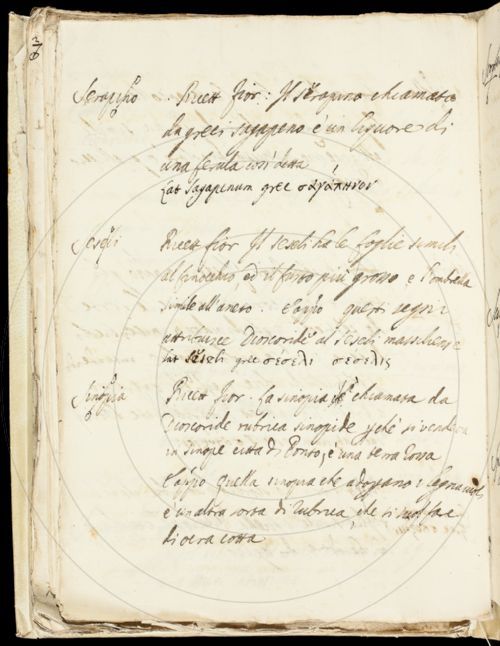 Serapino . Ricett Fior: Il serapino chiamato
da greci sagapeno è un liquore di
una ferula così detta
Lat Sagapenum grec σαγάπηνον
Seseli Ricett fior Il seseli ha le foglie simili
al finocchio ed il fusto più grosso e l'ombrella
simile all'aneto: questi segni
attribuisce Dioscoride al seseli massiliense
lat Seseli grec σέσελι σεσελις
Sinopia Ricett Fior. La sinopia chiamata da
Dioscoride rubrica sinopide perché si vendeva
in Sinope città di Ponto, è una terra rossa
quella sinopia che adoprano i legnaiuoli
è un'altra sorta di rubrica, che si fa
di ocra cotta